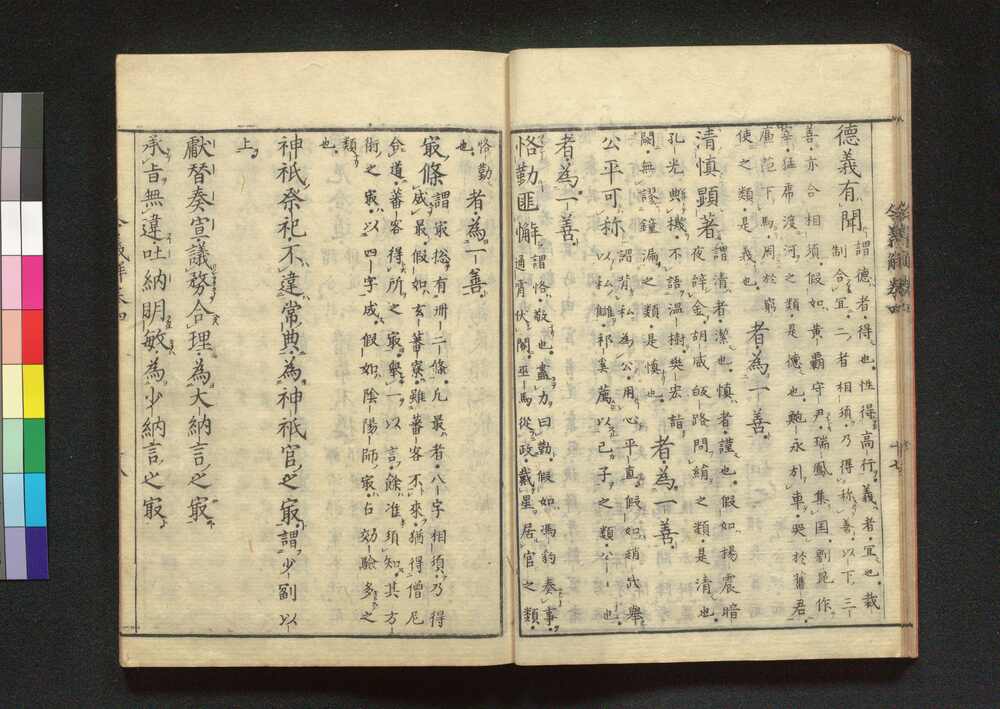 德義有聞謂德者得也性得高行義者宜也裁
制合宜二者相須乃得稱善以下三
善亦合相須假如黄霸守尹瑞鳳集国劉昆作
宰猛虎渡河之類是德也鮑永引車哭於舊君
廉范下馬周於窮
使之類是義也 者為一善
清慎顯著謂清者潔也慎者謹也假如揚震暗
夜辞金胡威皈路問絹之類是清也
孔光典機不語温樹樊宏詣
闕無謬鐘漏之類是慎也 者為一善
公平可称謂背私為公用心平直假如趙武舉
以私讎祁奚薦以己子之類公也
者為一善
恪勤匪懈謂恪敬也盡力曰勤假如馮豹奏事
通宵伏閤巫馬從政戴星居官之類
恪勤
也 者為一善
㝡條謂㝡惣有卌二條凡最者八字相須乃得
成最假如玄蕃寮雖蕃客不來猶得僧尼
合道蕃客得所之㝡舉一以言餘准須知其方
術之㝡以四字成假如陰陽師㝡占効驗多之
類
也
神祇祭祀不違常典為神祇官之㝡謂少副以
上
獻替奏宣議務合理為大納言之㝡
承旨無違吐納明敏為少納言之㝡